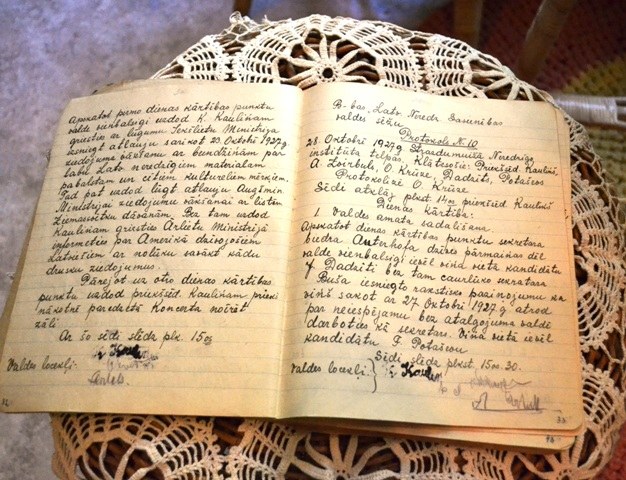 Apskatot pirmo dienas kārtības punktu
valde vienbalsīgi uzdod K. Kauliņam
griesties ar lūgumu Iekšlietu Ministrijā
izsniegt atļauju sarīkot 23. Oktobrī 1927.g.
ziedojumu vākšanu ar bundžiņām par
labu Latv. neredzīgiem materialam
pabalstam un citiem kultureliem mērķiem.
Tad pat uzdod lūgt atļauju Augšmin.
Ministrijai ziedojumu vākšanai ar listēm
Ziemassvētku dāvanām. Bez tam uzdod
Kauliņam griesties Arlietu Ministrijā
informēties par Amerikā dzīvojošiem
Latviešiem ar nolūku savākt kādu
drusku ziedojumus.
Pārejot uz otro dienas kārtības
punktu uzdod priekšsēd. Kauliņam
nākotnē paredzēto koncerta noīrēt
zāli.
Ar šo sēdi slēdz plk. 15
Valdes locekļi:
B-bas Latv. Neredz. Savienības
valdes sēžu
Protokols N. 10
28. Oktobrī 1927.g. Strazdumuižā Neredzīgo
institūta telpās. Klātesošie: Priekšsēd. Kauliņš
A. Zvirbuls, O. Krūze, Dadzīts, Potašovs
Protokolizē O. Krūze
Sēdi atklāj plkst. 14 priekšsēd. Kauliņš
Dienas kārtība:
1. Valdes amata sadalīšana.
Apskatot dienas kārtības punktu sekretara
biedra dzīves pārmaiņas dēļ
valde vienbalsīgi ievēl viņa vietā kandidātu
Dadzīti bez tam caurlūko sekretara
Buša iesniegto rakstisko paziņojumu ka
viņš sakot ar 27 Oktobri 1927.g atrod
par neiespējamu bez atalgojuma valdē
darboties kā sekretars. Viņa vietā ievēl
kandidātu F. Potašovu
Sēdi slēdz plkst. 15 30.
Valdes locekļi:
33